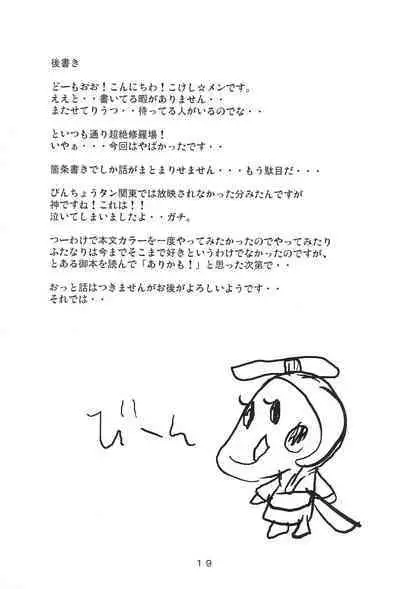 後書き
どーもおお！こんにちわ！こけし☆メンです。
ええと・・書いてる暇がありません・・
またせてりうつ・・待ってる人がいるのでな・・
といつも通り超絶修羅場！
いやぁ・・・今回はやばかったです・・
箇条書きでしか話がまとまりせません・・・もう駄目だ・・
びんちょうタン関東では放映されなかった分みたんですが
神ですね！これは！！
泣いてしまいましたよ・・ガチ。
つーわけで本文カラーを一度やってみたかったのでやってみたり
ふたなりは今までそこまで好きというわけでなかったのですが、
とある御本を読んで「ありかも！」と思った次第で・・
おっと話はつきませんがお後がよろしいようです・・
それでは・・
びーん
19